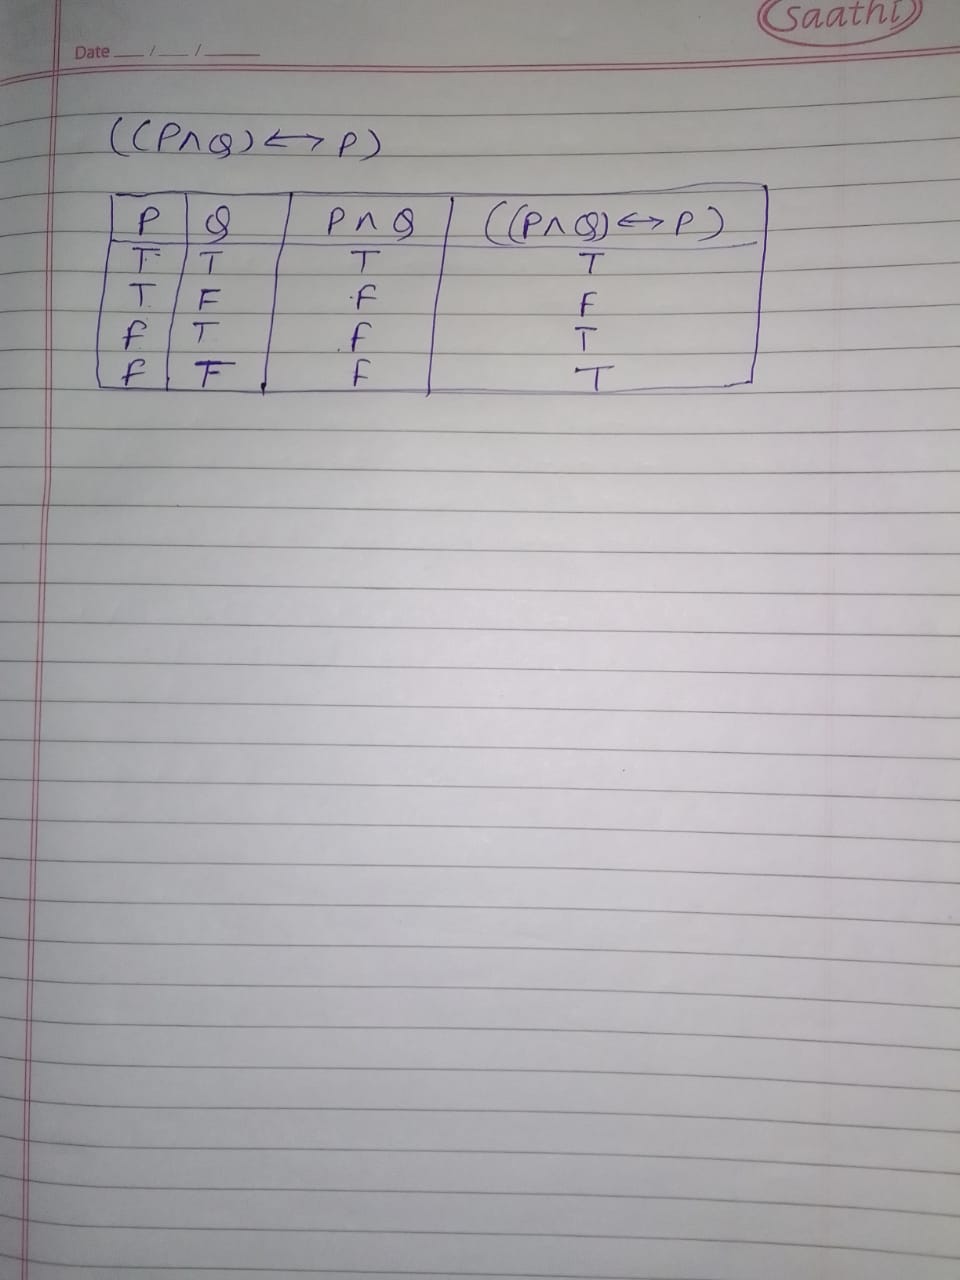 saathi
Date __/__/____
((P∧Q)↔P)
P Q P∧Q ((P∧Q)↔P)
T T T T
T F F F
F T F T
F F F T